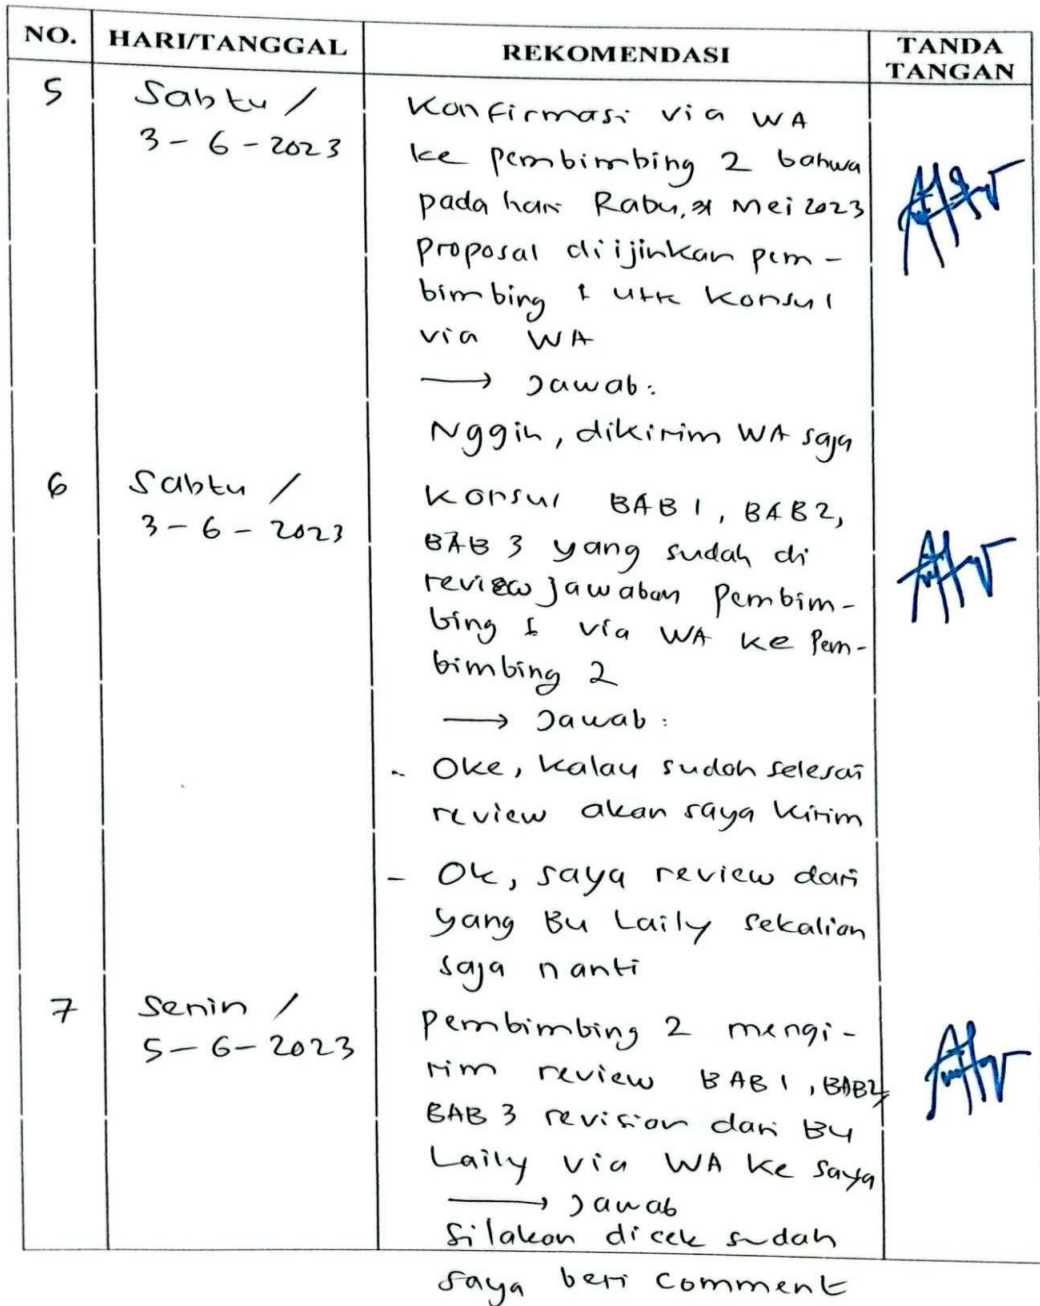 NO. HARI/TANGGAL REKOMENDASI TANDA TANGAN
5 Sabtu / Konfirmasi via WA
3-6-2023 ke pembimbing 2 bahwa
pada hari Rabu, 31 Mei 2023
proposal diijinkan pem-
bimbing 1 utk konsul
via WA
→ Jawab:
Nggih, dikirim WA saja
6 Sabtu / Konsul BAB 1, BAB 2,
3-6-2023 BAB 3 yang sudah di
review jawaban Pembim-
bing 1 via WA ke Pem-
bimbing 2
→ Jawab:
- Oke, kalau sudah selesai
review akan saya kirim
- Ok, saya review dari
yang Bu Laily sekalian
saja nanti
7 Senin / Pembimbing 2 mengi-
5-6-2023 rim review BAB 1, BAB 2,
BAB 3 revision dari Bu
Laily via WA ke saya
→ Jawab
Silakan dicek sudah
saya beri comment